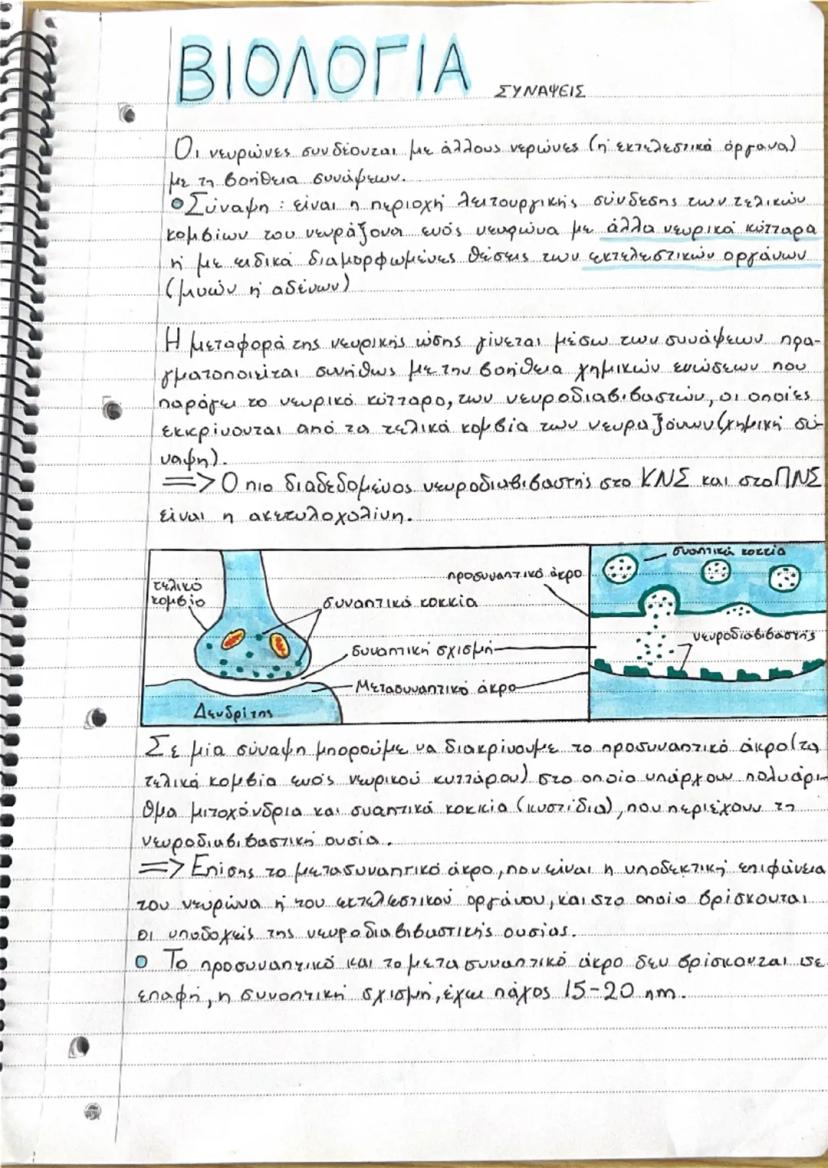 ΒΙΟΛΟΓΙΑ ΣΥΝΑΨΕΙΣ
Οι νευρώνες συνδέονται με άλλους νερώνες (ή εκτελεστικά όργανα)
με τη βοήθεια συνάψεων.
Σύναψη : είναι η περιοχή λειτουργικής σύνδεσης των τελικών
κομβίων του νευράξονα ενός νευρώνα με άλλα νευρικά κύτταρα
ή με ειδικά διαμορφωμένες θέσεις των εκτελεστικών οργάνων
(μυών ή αδένων)
Η μεταφορά της νευρικής ώσης γίνεται μέσω των συνάψεων πρα-
γματοποιείται συνήθως με την βοήθεια χημικών ενώσεων που
παράγει το νευρικό κύτταρο, των νευροδιαβιβαστών, οι οποίες
εκκρίνονται από τα τελικά κομβία των νευραξόνων (χημική σύ-
ναψη).
=> Ο πιο διαδεδομένος νευροδιαβιβαστής στο ΚΝΣ και στο ΠΝΣ
είναι η ακετυλοχολίνη.
τελικό
κομβίο
συναπτικά κοκκία
συναπτική σχισμή
Μετασυναπτικό άκρο
Δενδρίτης
προσυναπτικό άκρο
συαπτικά κοκκία
νευροδιαβιβαστής
Σε μία σύναψη μπορούμε να διακρίνουμε το προσυναπτικό άκρο (τα
τελικά κομβία ενός νευρικού κυττάρου) στο οποίο υπάρχουν πολυάρι-
θμα μιτοχόνδρια και συαπτικά κοκκία (κυστίδια), που περιέχουν τη
νευροδιαβιβαστική ουσία.
=> Επίσης το μετασυναπτικό άκρο, που είναι η υποδεκτική επιφάνεια
του νευρώνα ή του εκτελεστικού οργάνου, και στο οποίο βρίσκονται
οι υποδοχείς της νευροδιαβιβαστικής ουσίας.
Το προσυναπτικό και το μετασυναπτικό άκρο δεν βρίσκονται σε
επαφή, η συνοπτική σχισμή, έχει πάχος 15-20 nm.